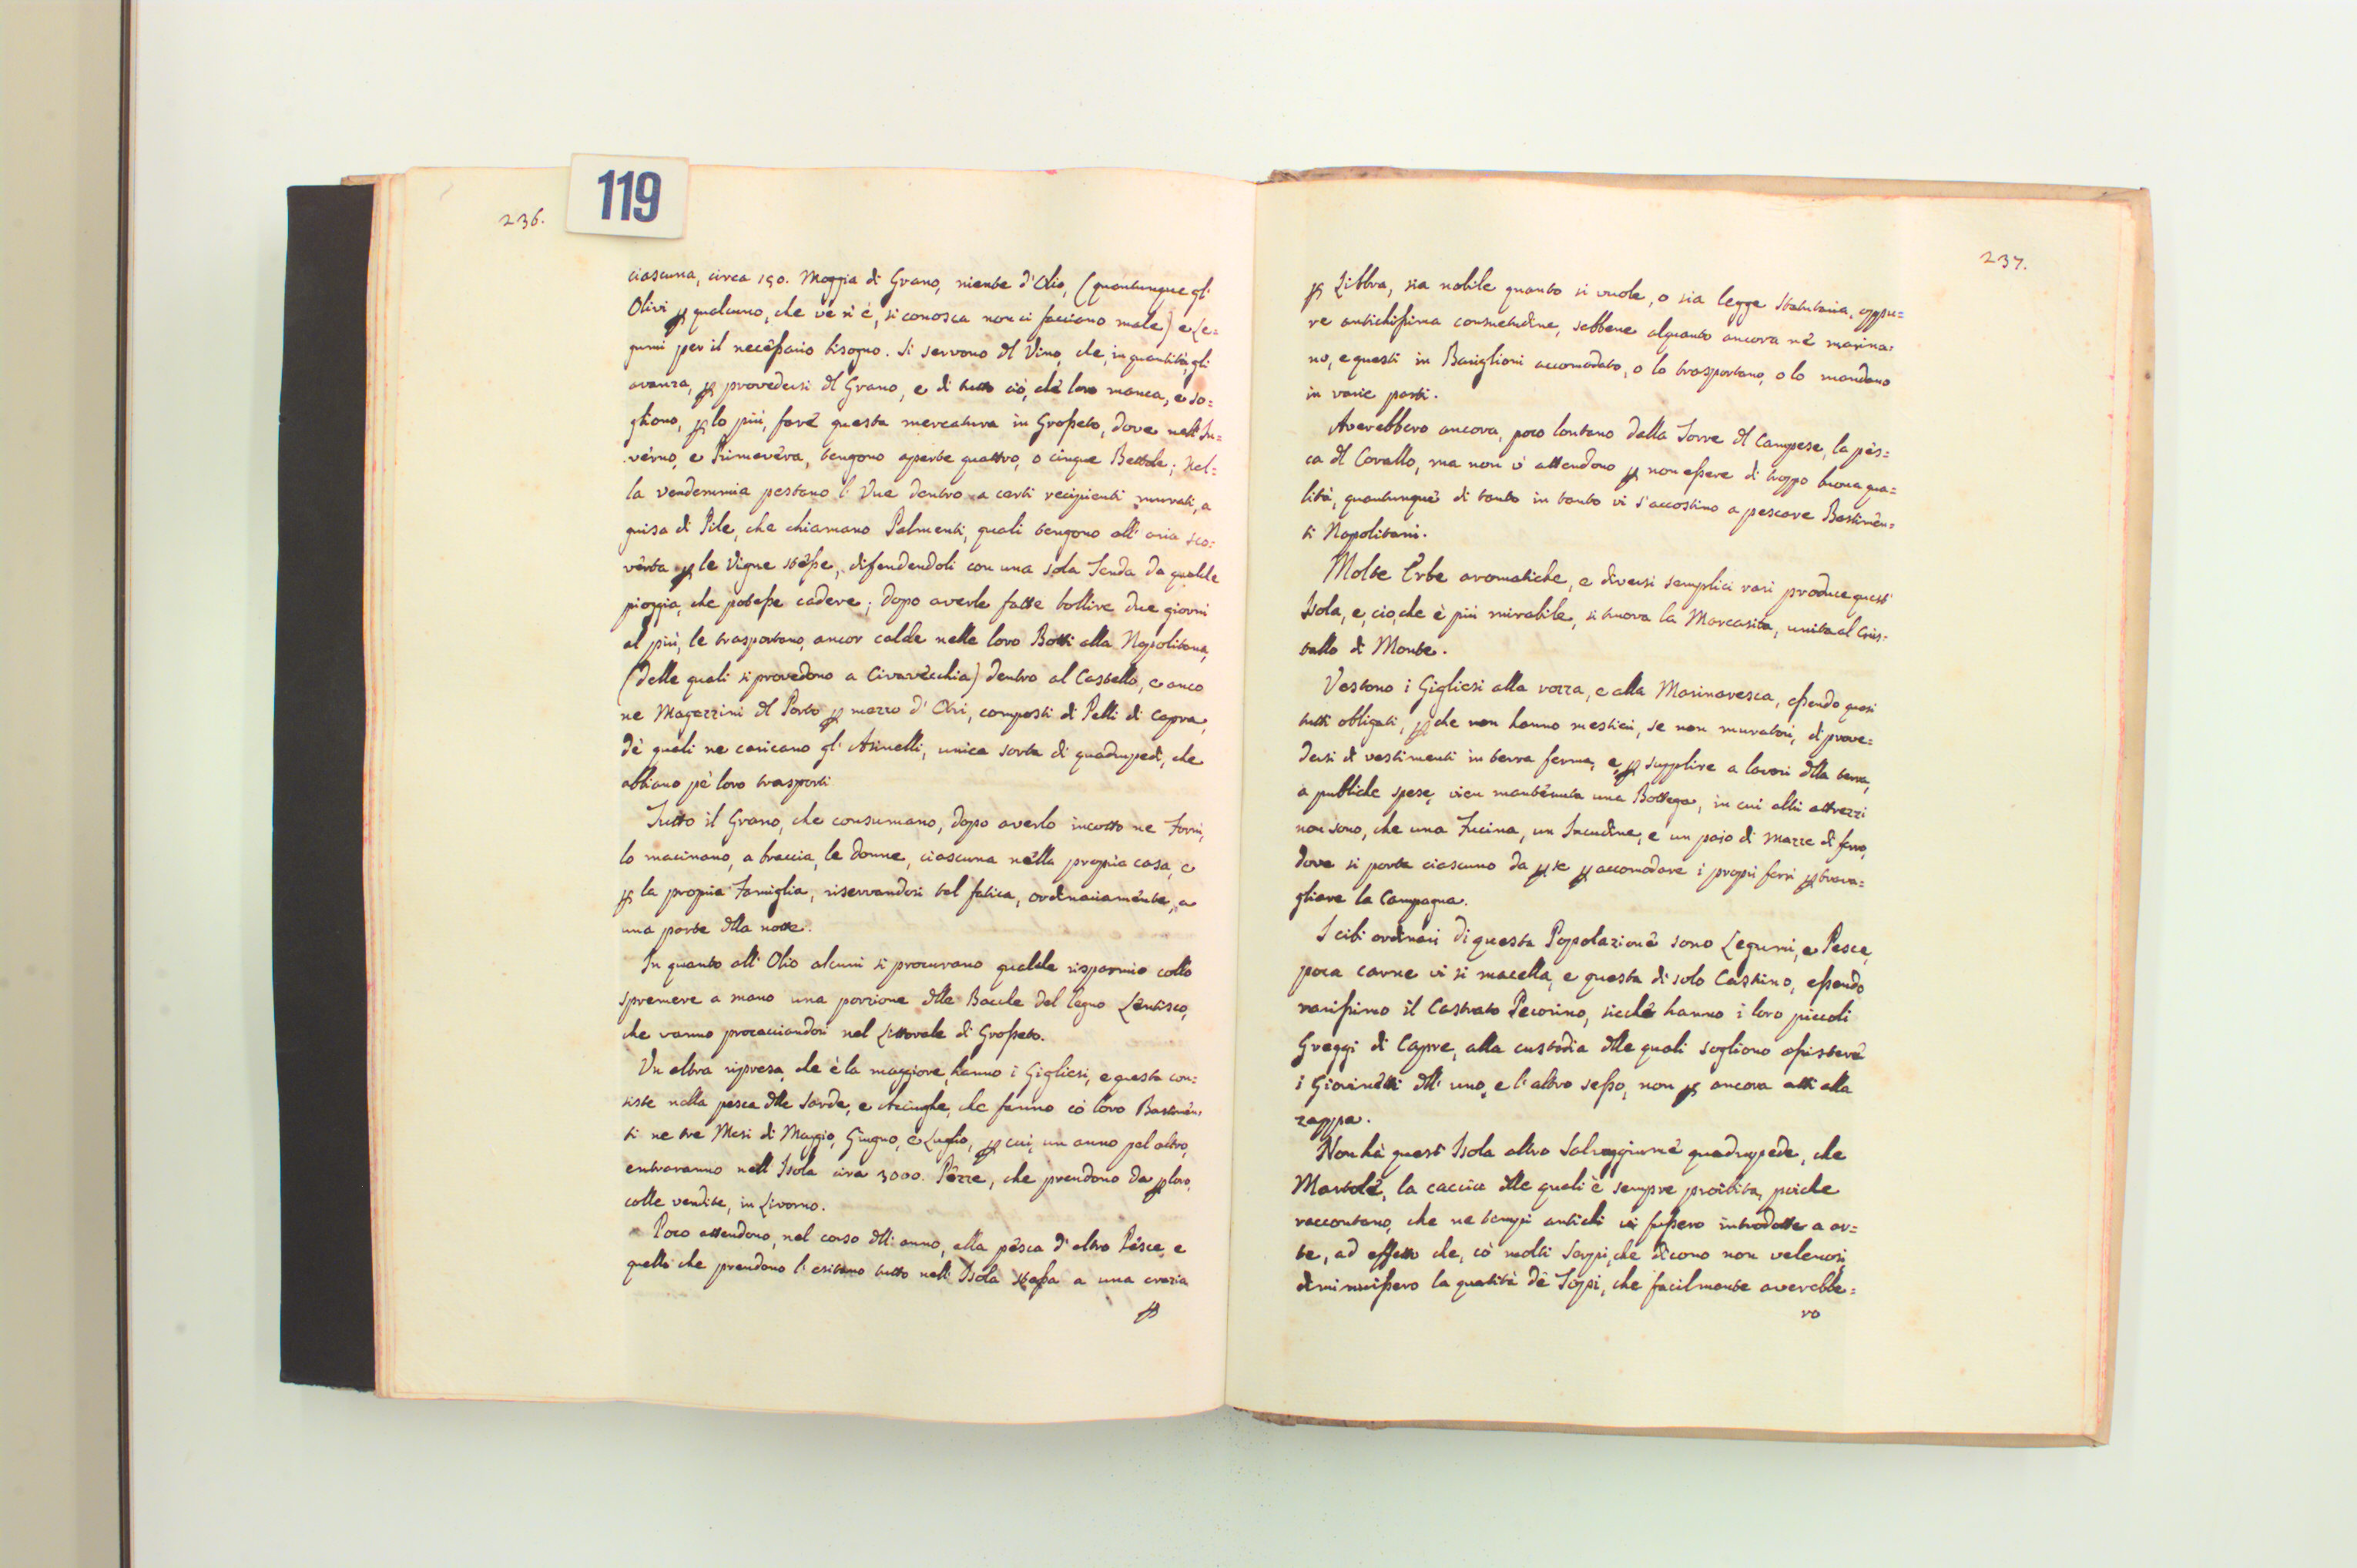 236.
119
ciascuna, circa 150. Moggia di Grano, niente d'Olio, (quantunque gl'
Olivi p qualcuno, che ve n'è, si conosca non ci facciano male) e Le=
gumi per il necessario bisogno. Si servono dl Vino, che, in quantità, gli
avanza, p provedersi dl Grano, e di tutto ciò, che loro manca, e so=
gliono, p lo più, fare questa mercatura in Grosseto, dove nell'In=
verno, e Primavera, tengono aperte quattro, o cinque Bettole; Nel=
la vendemmia pestano l'Uve dentro a certi recipienti murati, a
guisa di Pile, che chiamano Palmenti, quali tengono all'aria sco=
verta p le Vigne stesse, difendendoli con una sola Tenda da qualche
pioggia, che potesse cadere; dopo averle fatte bollire due giorni
al più, le trasportano, ancor calde nelle loro Botti alla Napolitana,
(delle quali si provedono a Civavecchia) dentro al Castello, e anco
ne Magazzini dl Porto p mezzo d'Otri, composti di Pelli di Capra,
dè quali ne caricano gl'Asinelli, unica sorta di quadrupedi, che
abbiano pè loro trasporti
Tutto il Grano, che consumano, dopo averlo incotto ne Forni,
lo macinano, a braccia, le donne, ciascuna nella propria casa, e
p la propria Famiglia, riservandosi tal fatica, ordinariamente, a
una parte dlla notte.
In quanto all'Olio alcuni si procurano qualche risparmio collo
spremere a mano una porzione dlle Baccle del legno Lentisco,
che vanno procacciandosi nel Littorale di Grosseto.
Un altra ripresa, che è la maggiore, hanno i Gigliesi, e questa con=
siste nella pesca dlle Sarde, e Acciughe, che fanno cò loro Bastimen=
ti ne tre Mesi di Maggio, Giugno, e Luglio, p cui, un anno pel altro,
entraranno nell'Isola circa 3000. Pezze, che prendono da p loro,
colle vendite, in Livorno.
Poco attendono, nel corso dll'anno, alla pesca d'altro Pesce, e
quello che prendono l'esitano tutto nell'Isola stessa a una crazia
p
237.
p Libbra, sia nobile quanto si vuole, o sia legge statutaria, oppu=
re antichissima consuetudine, sebbene alquanto ancora nè marina=
no, e questi in Bariglioni accomodato, o lo trasportano, o lo mandano
in varie parti.
Averebbero ancora, poco lontano dalla Torre dl Campese, la pes=
ca dl Corallo, ma non v'attendono p non essere di troppo buona qua=
lità, quantunque di tanto in tanto vi s'accostino a pescare Bastimen=
ti Napolitani.
Molte Erbe aromatiche, e diversi semplici rari produce quest'
Isola, e, ciò, che è più mirabile, si truova la Marcasita, unita al Cris=
tallo di Monte.
Vestono i Gigliesi alla rozza, e alla Marinaresca, essendo quasi
tutti obligati, p che non hanno mestieri, se non muratori, di prove=
dersi di vestimenti in terra ferma, e, p supplire a lavori dlla terra,
a publiche spese, vien mantenuta una Bottega, in cui altri attrezzi
non sono, che una Fucina, un Incudine, e un paio di Mazze di ferro,
dove si porta ciascuno da p se p accomodare i propri ferri p trava=
gliare la Campagna.
I cibi ordinari di questa Popolazione sono Legumi, e Pesce,
poca carne vi si macella, e questa di solo Castrino, essendo
rarissimo il Castrato Pecorino, sicchè hanno i loro piccoli
Greggi di Capre, alla custodia dlle quali sogliono assistere
i Giovinetti dll'uno, e l'altro sesso, non p ancora atti alla
zappa.
Non hà quest'Isola altro Salvaggiume quadrupede, che
Martole, la caccia dlle quali è sempre proibita, poiche
raccontano, che ne tempi antichi vi fussero introdotte a ar=
te, ad effetto che, cò molti Serpi, che dicono non velenosi,
diminuissero la quatità dè Topi, che facilmente averebbe=
ro